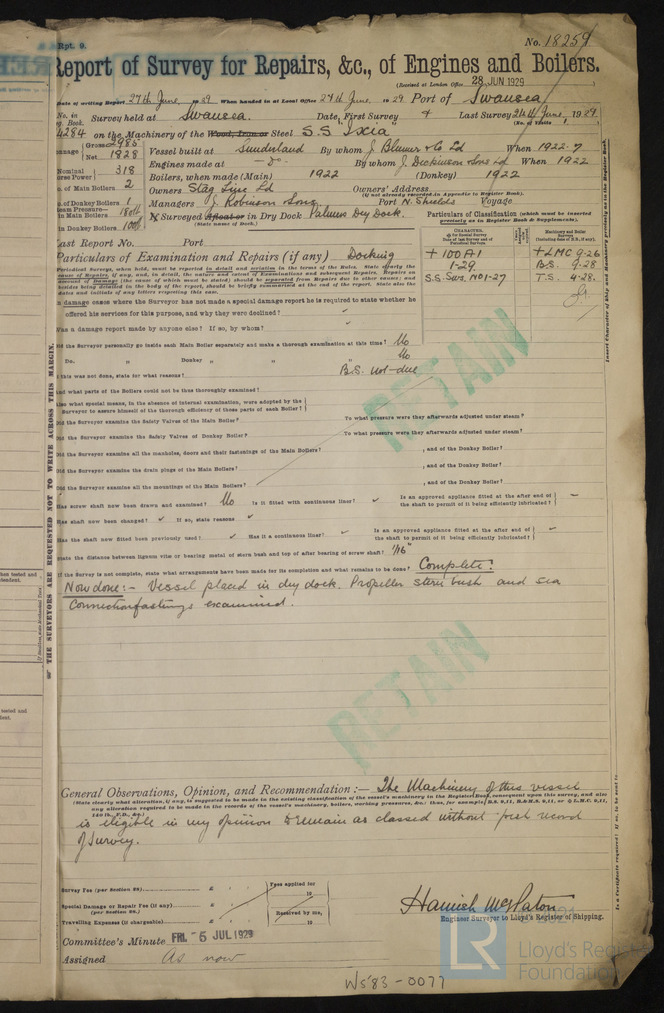 Rpt. 9.
No. 18259
Report of Survey for Repairs, &c., of Engines and Boilers.
(Received at London Office 28 JUN 1929
Date of writing Report 27th June, 1929 When handed in at Local Office 27th June, 1929 Port of Swansea
No. in Survey held at Swansea. Date, First Survey Last Survey June, 1929
Reg. Book. (No. of Visits 1.)
4284 on the Machinery of the Wood, Iron or Steel S.S. "Ixia"
Gross 2985
Net 1828
Vessel built at Sunderland By whom J. Blumer & Co Ld When 1922-7
Nominal Horse Power 318
Engines made at -do- By whom J. Dickinson Sons Ld When 1922
No. of Main Boilers 2
Boilers, when made (Main) 1922 (Donkey) 1922
Owners Stag Line Ld Owners' Address
(if not already recorded in Appendix to Register Book).
No. of Donkey Boilers 1
Managers J. Robinson Sons Port N. Shields Voyage
Steam Pressure in Main Boilers 180lb
in Donkey Boilers 100lb
If Surveyed Afloat or in Dry Dock Palmers Dry Dock.
(State name of Dock.)
Last Report No. Port
Particulars of Classification (which must be inserted precisely as in Register Book & Supplements).
+ 100A1 + LMC 9-26
1-29 B.S. 9-28
S.S. Sws. No1-27 T.S. 4-28.
Particulars of Examination and Repairs (if any) Docking
In damage cases where the Surveyor has not made a special damage report he is required to state whether he
offered his services for this purpose, and why they were declined?
Was a damage report made by anyone else? If so, by whom?
Did the Surveyor personally go inside each Main Boiler separately and make a thorough examination at this time? No
Do. " Donkey " " " No
If this was not done, state for what reasons? B.S. not due
And what parts of the Boilers could not be thus thoroughly examined?
Also what special means, in the absence of internal examination, were adopted by the
Surveyor to assure himself of the thorough efficiency of those parts of each Boiler?
Did the Surveyor examine the Safety Valves of the Main Boiler? To what pressure were they afterwards adjusted under steam?
Did the Surveyor examine the Safety Valves of Donkey Boiler? To what pressure were they afterwards adjusted under steam?
Did the Surveyor examine all the manholes, doors and their fastenings of the Main Boilers? , and of the Donkey Boiler?
Did the Surveyor examine the drain plugs of the Main Boilers? , and of the Donkey Boiler?
Did the Surveyor examine all the mountings of the Main Boilers? , and of the Donkey Boiler?
Has screw shaft now been drawn and examined? No Is it fitted with continuous liner? Is an approved appliance fitted at the after end of
the shaft to permit of it being efficiently lubricated?
Has shaft now been changed? If so, state reasons
Has the shaft now fitted been previously used? Has it a continuous liner? Is an approved appliance fitted at the after end of
the shaft to permit of it being efficiently lubricated?
State the distance between lignum vitæ or bearing metal of stern bush and top of after bearing of screw shaft? 1/16"
If the Survey is not complete, state what arrangements have been made for its completion and what remains to be done? Complete.
Now done:- Vessel placed in dry dock. Propeller stern bush and sea
connection fastenings examined.
RETAIN
RETAIN
General Observations, Opinion, and Recommendation:— The Machinery of this vessel
is eligible in my opinion to remain as classed without fresh record
of survey.
Survey Fee (per Section 28) £
Fees applied for
Special Damage or Repair Fee (if any) £
(per Section 28.)
Received by me,
Travelling Expenses (if chargeable) £
Engineer Surveyor to Lloyd's Register of Shipping.
Committee's Minute FRI. 5 JUL 1929
Assigned As now
THE SURVEYORS ARE REQUESTED NOT TO WRITE ACROSS THIS MARGIN.
LR
Lloyd's Register
Foundation
WS83-0077